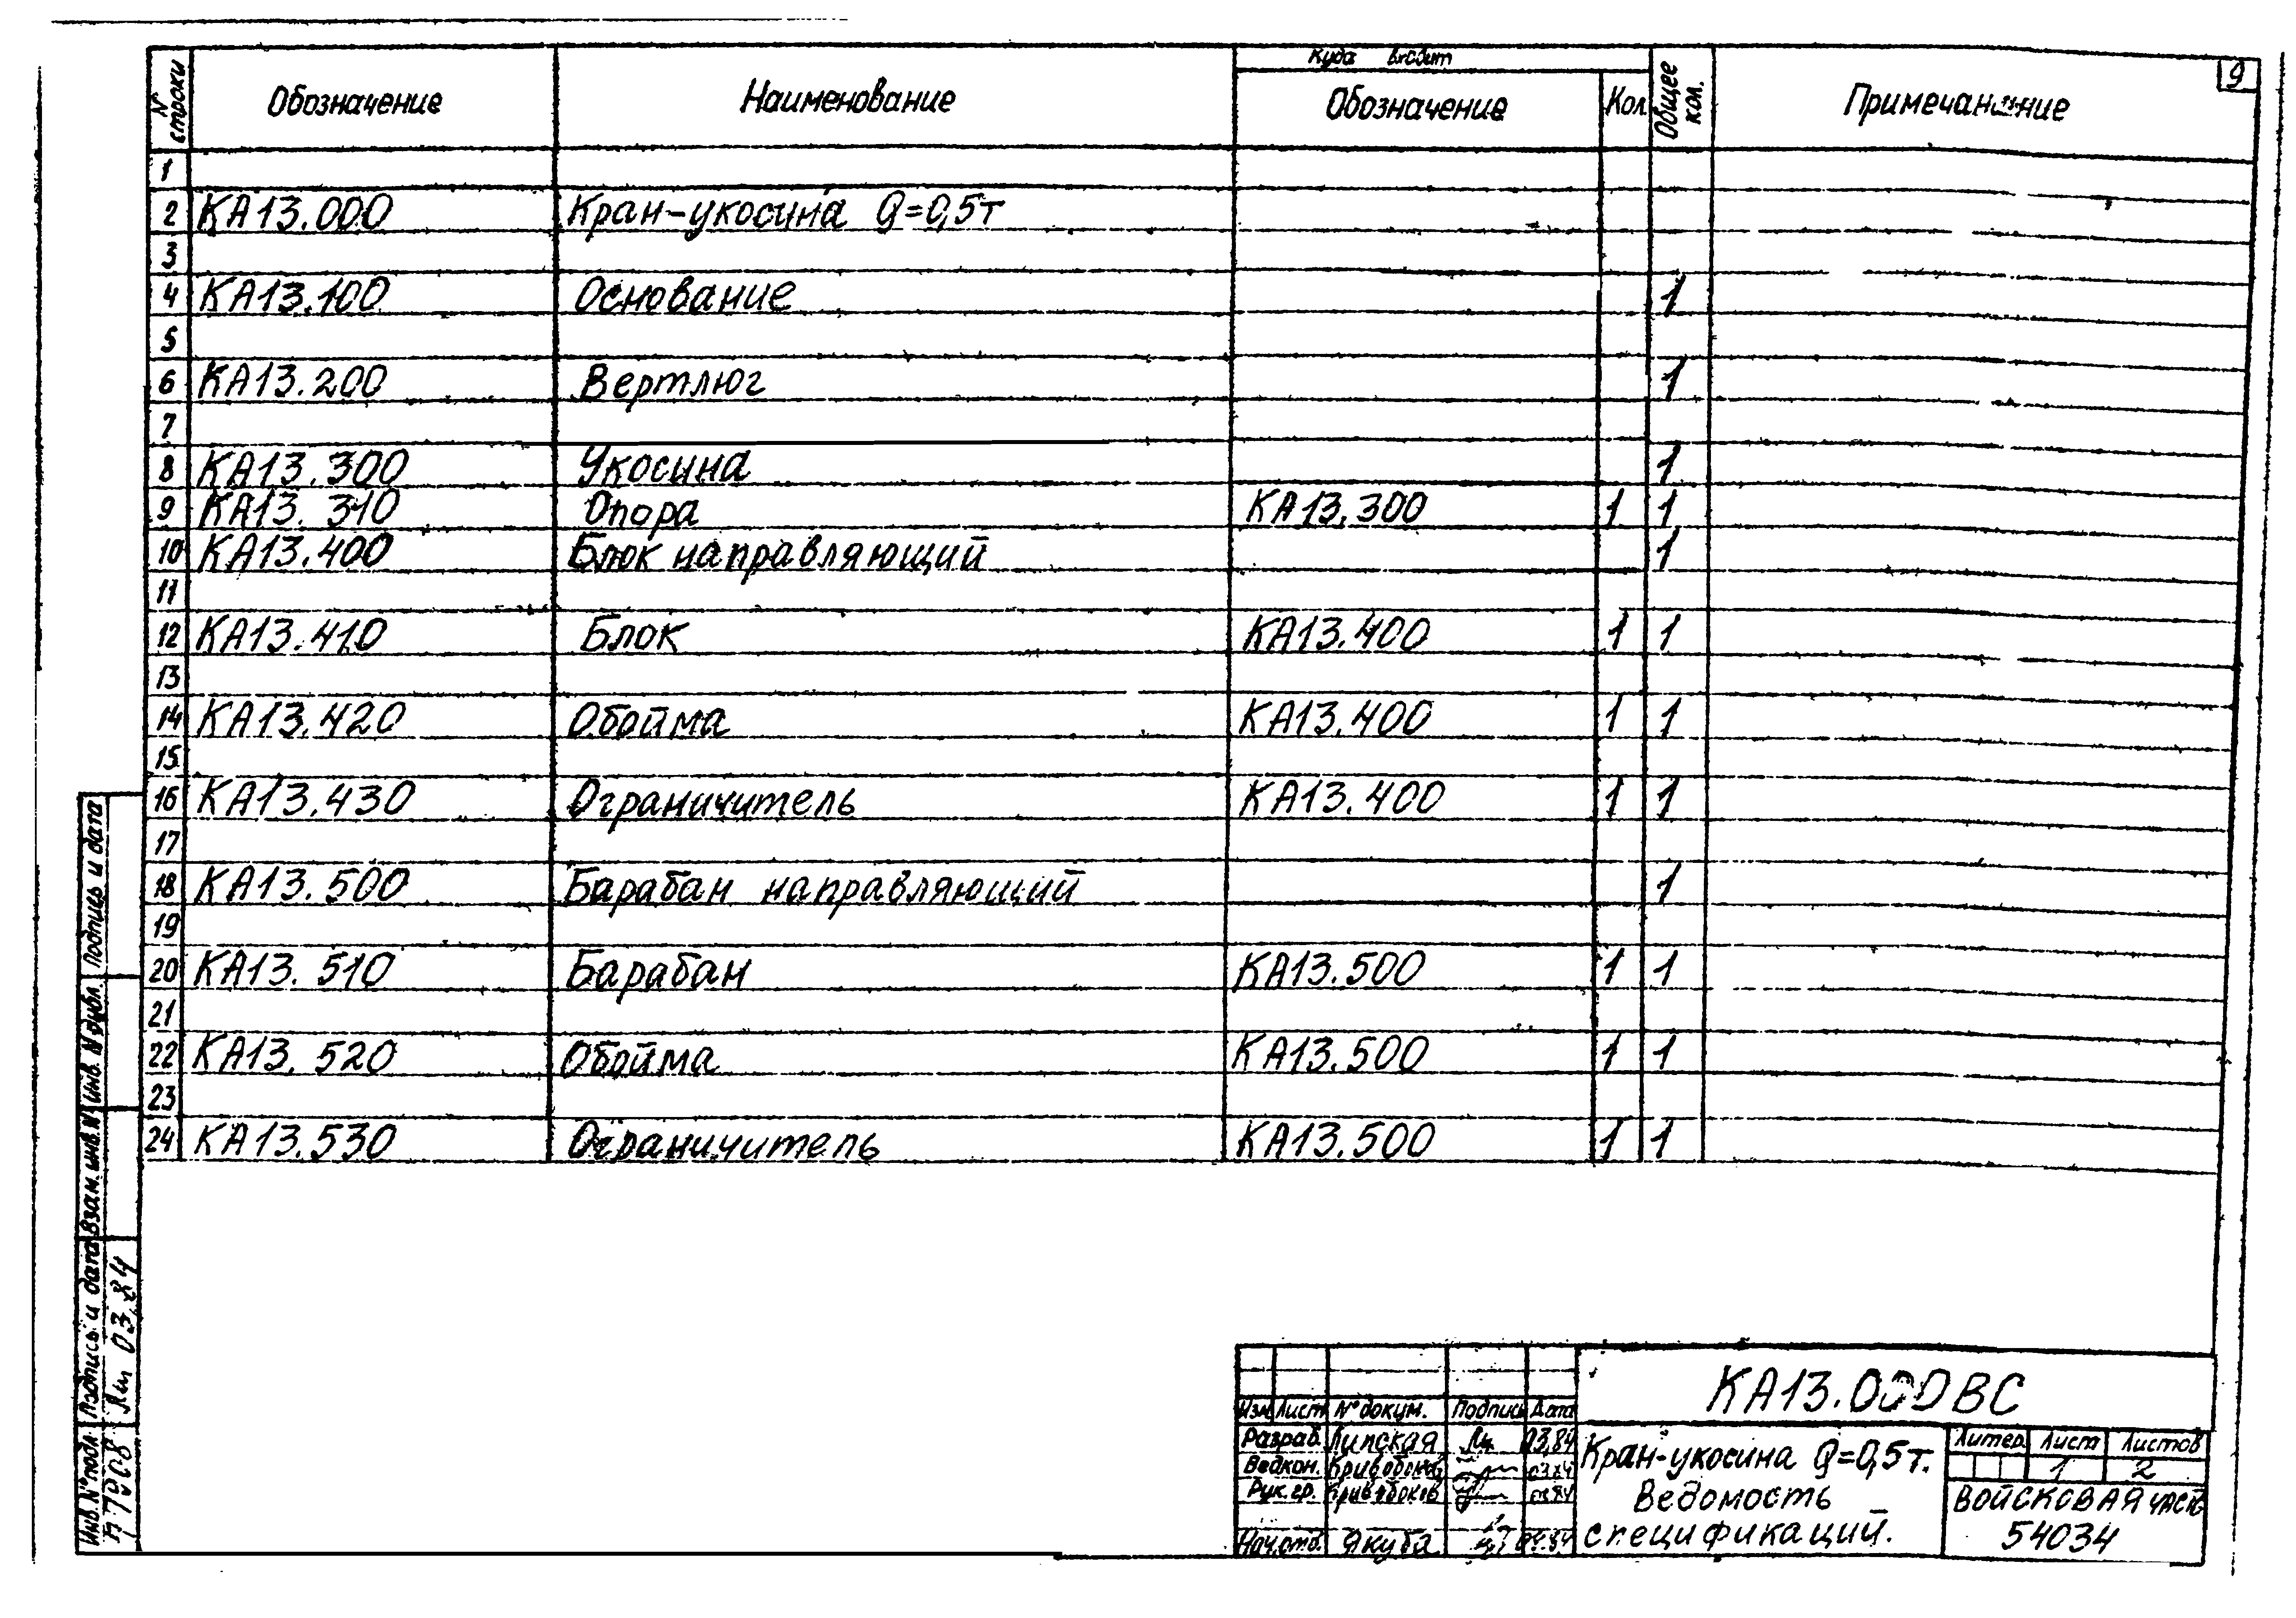 9
№ строки Обозначение Наименование Куда входит Общее кол. Примечание
Обозначение Кол.
1
2 КА13.000 Кран-укосина Q=0,5т
3
4 КА13.100 Основание 1
5
6 КА13.200 Вертлюг 1
7
8 КА13.300 Укосина 1
9 КА13.310 Опора КА13.300 1 1
10 КА13.400 Блок направляющий 1
11
12 КА13.410 Блок КА13.400 1 1
13
14 КА13.420 Обойма КА13.400 1 1
15
16 КА13.430 Ограничитель КА13.400 1 1
17
18 КА13.500 Барабан направляющий 1
19
20 КА13.510 Барабан КА13.500 1 1
21
22 КА13.520 Обойма КА13.500 1 1
23
24 КА13.530 Ограничитель КА13.500 1 1
Подпись и дата
Инв. № дубл.
Взам. инв. №
Подпись и дата 03.84
Инв. № подл.
КА13.000ВС
Изм Лист № докум. Подпись Дата
Разраб. Липская 03.84
Вед.кон. Кривобоков 03.84
Рук.гр. Кривобоков 03.84
Нач.отд. Якуба
Кран-укосина Q=0,5т.
Ведомость
спецификаций.
Литер. Лист Листов
1 2
ВОЙСКОВАЯ часть
54034